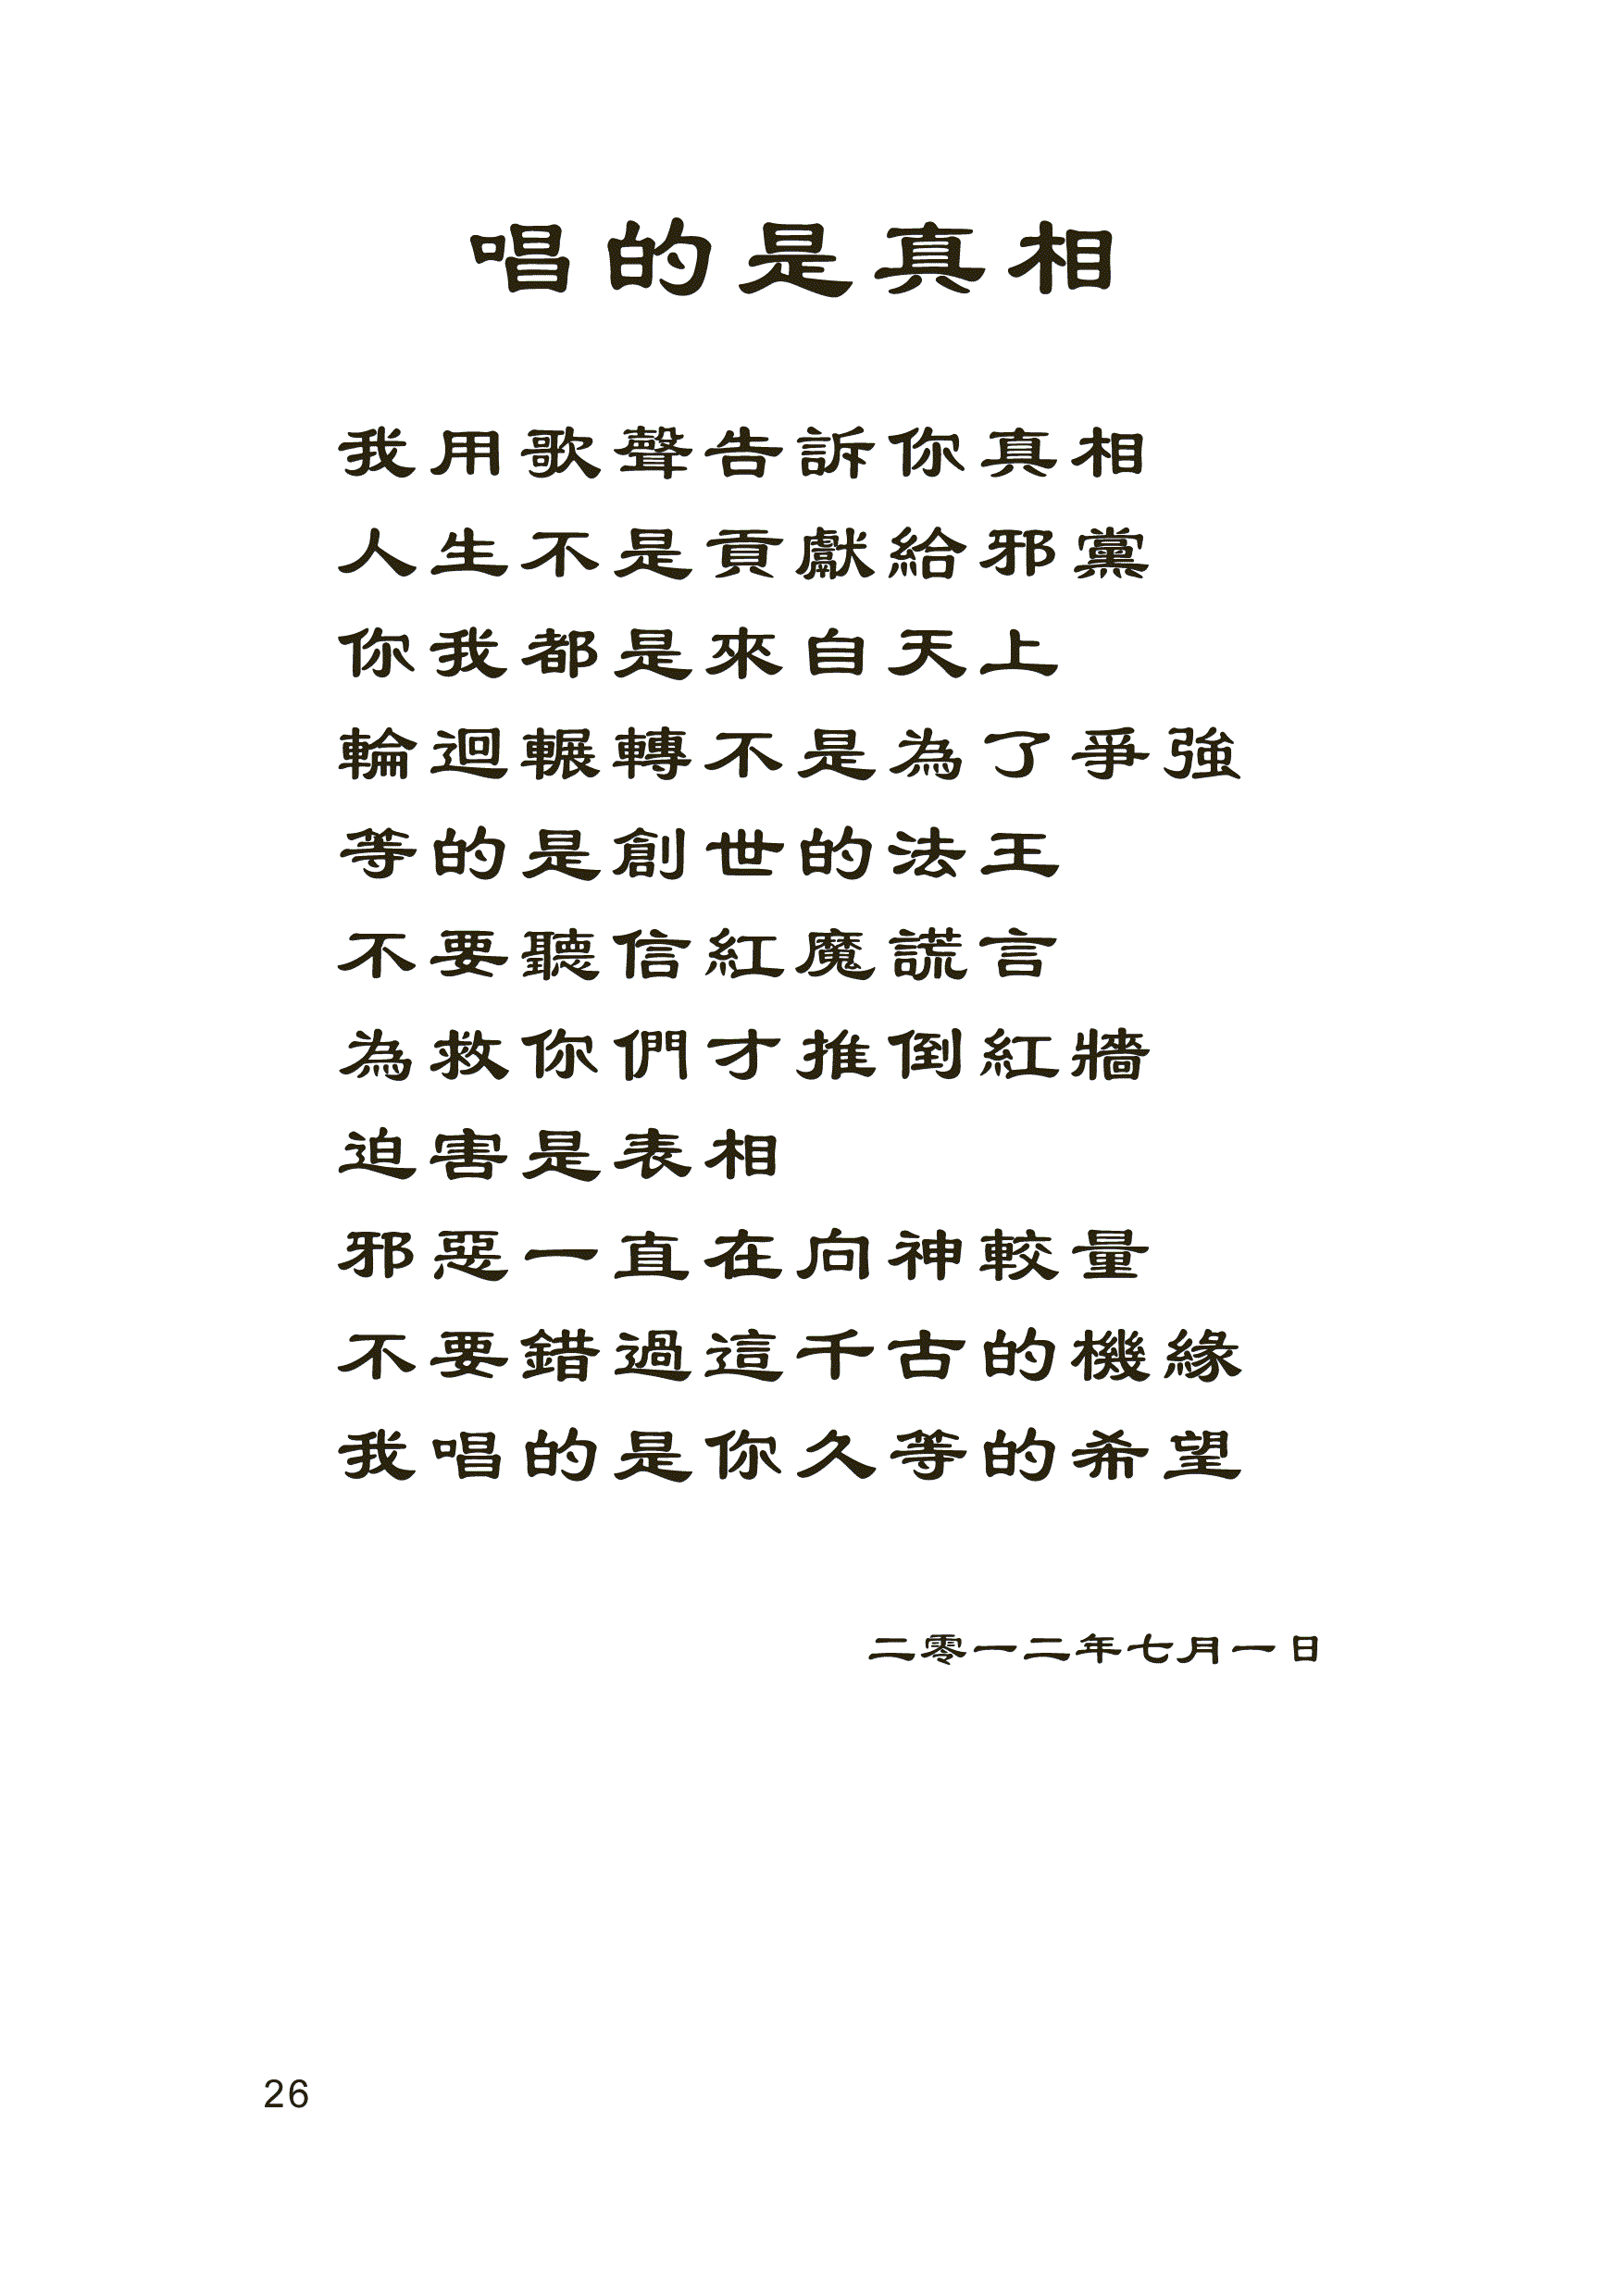 唱的是真相
我用歌聲告訴你真相
人生不是貢獻給邪黨
你我都是來自天上
輪迴輾轉不是為了爭強
等的是創世的法王
不要聽信紅魔謊言
為救你們才推倒紅牆
迫害是表相
邪惡一直在向神較量
不要錯過這千古的機緣
我唱的是你久等的希望
二零一二年七月一日
26